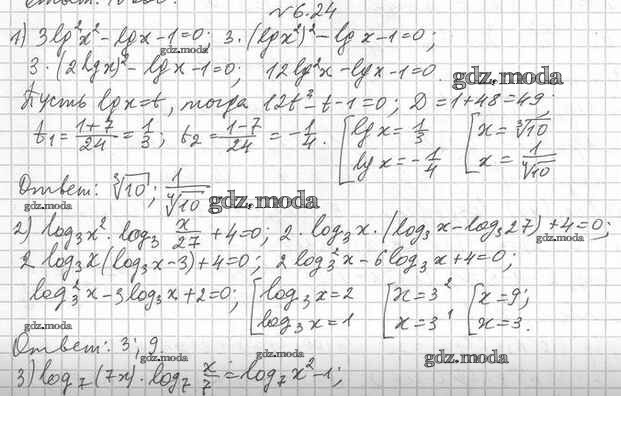 №6.24
1) 3lg²x² - lgx - 1 = 0; 3·(lgx²)² - lgx - 1 = 0;
gdz.moda
3·(2lgx)² - lgx - 1 = 0; 12lg²x - lgx - 1 = 0.
gdz.moda
Пусть lgx = t, тогда 12t² - t - 1 = 0; D = 1 + 48 = 49;
t₁ = (1+7)/24 = 1/3; t₂ = (1-7)/24 = -1/4. [lgx = 1/3 [x = ∛10
lgx = -1/4 x = 1/⁴√10
gdz.moda
Ответ: ∛10; 1/⁴√10
gdz.moda
gdz.moda
2) log₃x² · log₃ x/27 + 4 = 0; 2·log₃x·(log₃x - log₃27) + 4 = 0;
gdz.moda
2log₃x(log₃x - 3) + 4 = 0; 2log₃²x - 6log₃x + 4 = 0;
gdz.moda
log₃²x - 3log₃x + 2 = 0; [log₃x = 2 [x = 3² [x = 9;
log₃x = 1 x = 3¹ x = 3.
gdz.moda
Ответ: 3; 9
gdz.moda
gdz.moda
gdz.moda
3) log₇(7x)·log₇ x/7 = log₇x² - 1;
gdz.moda